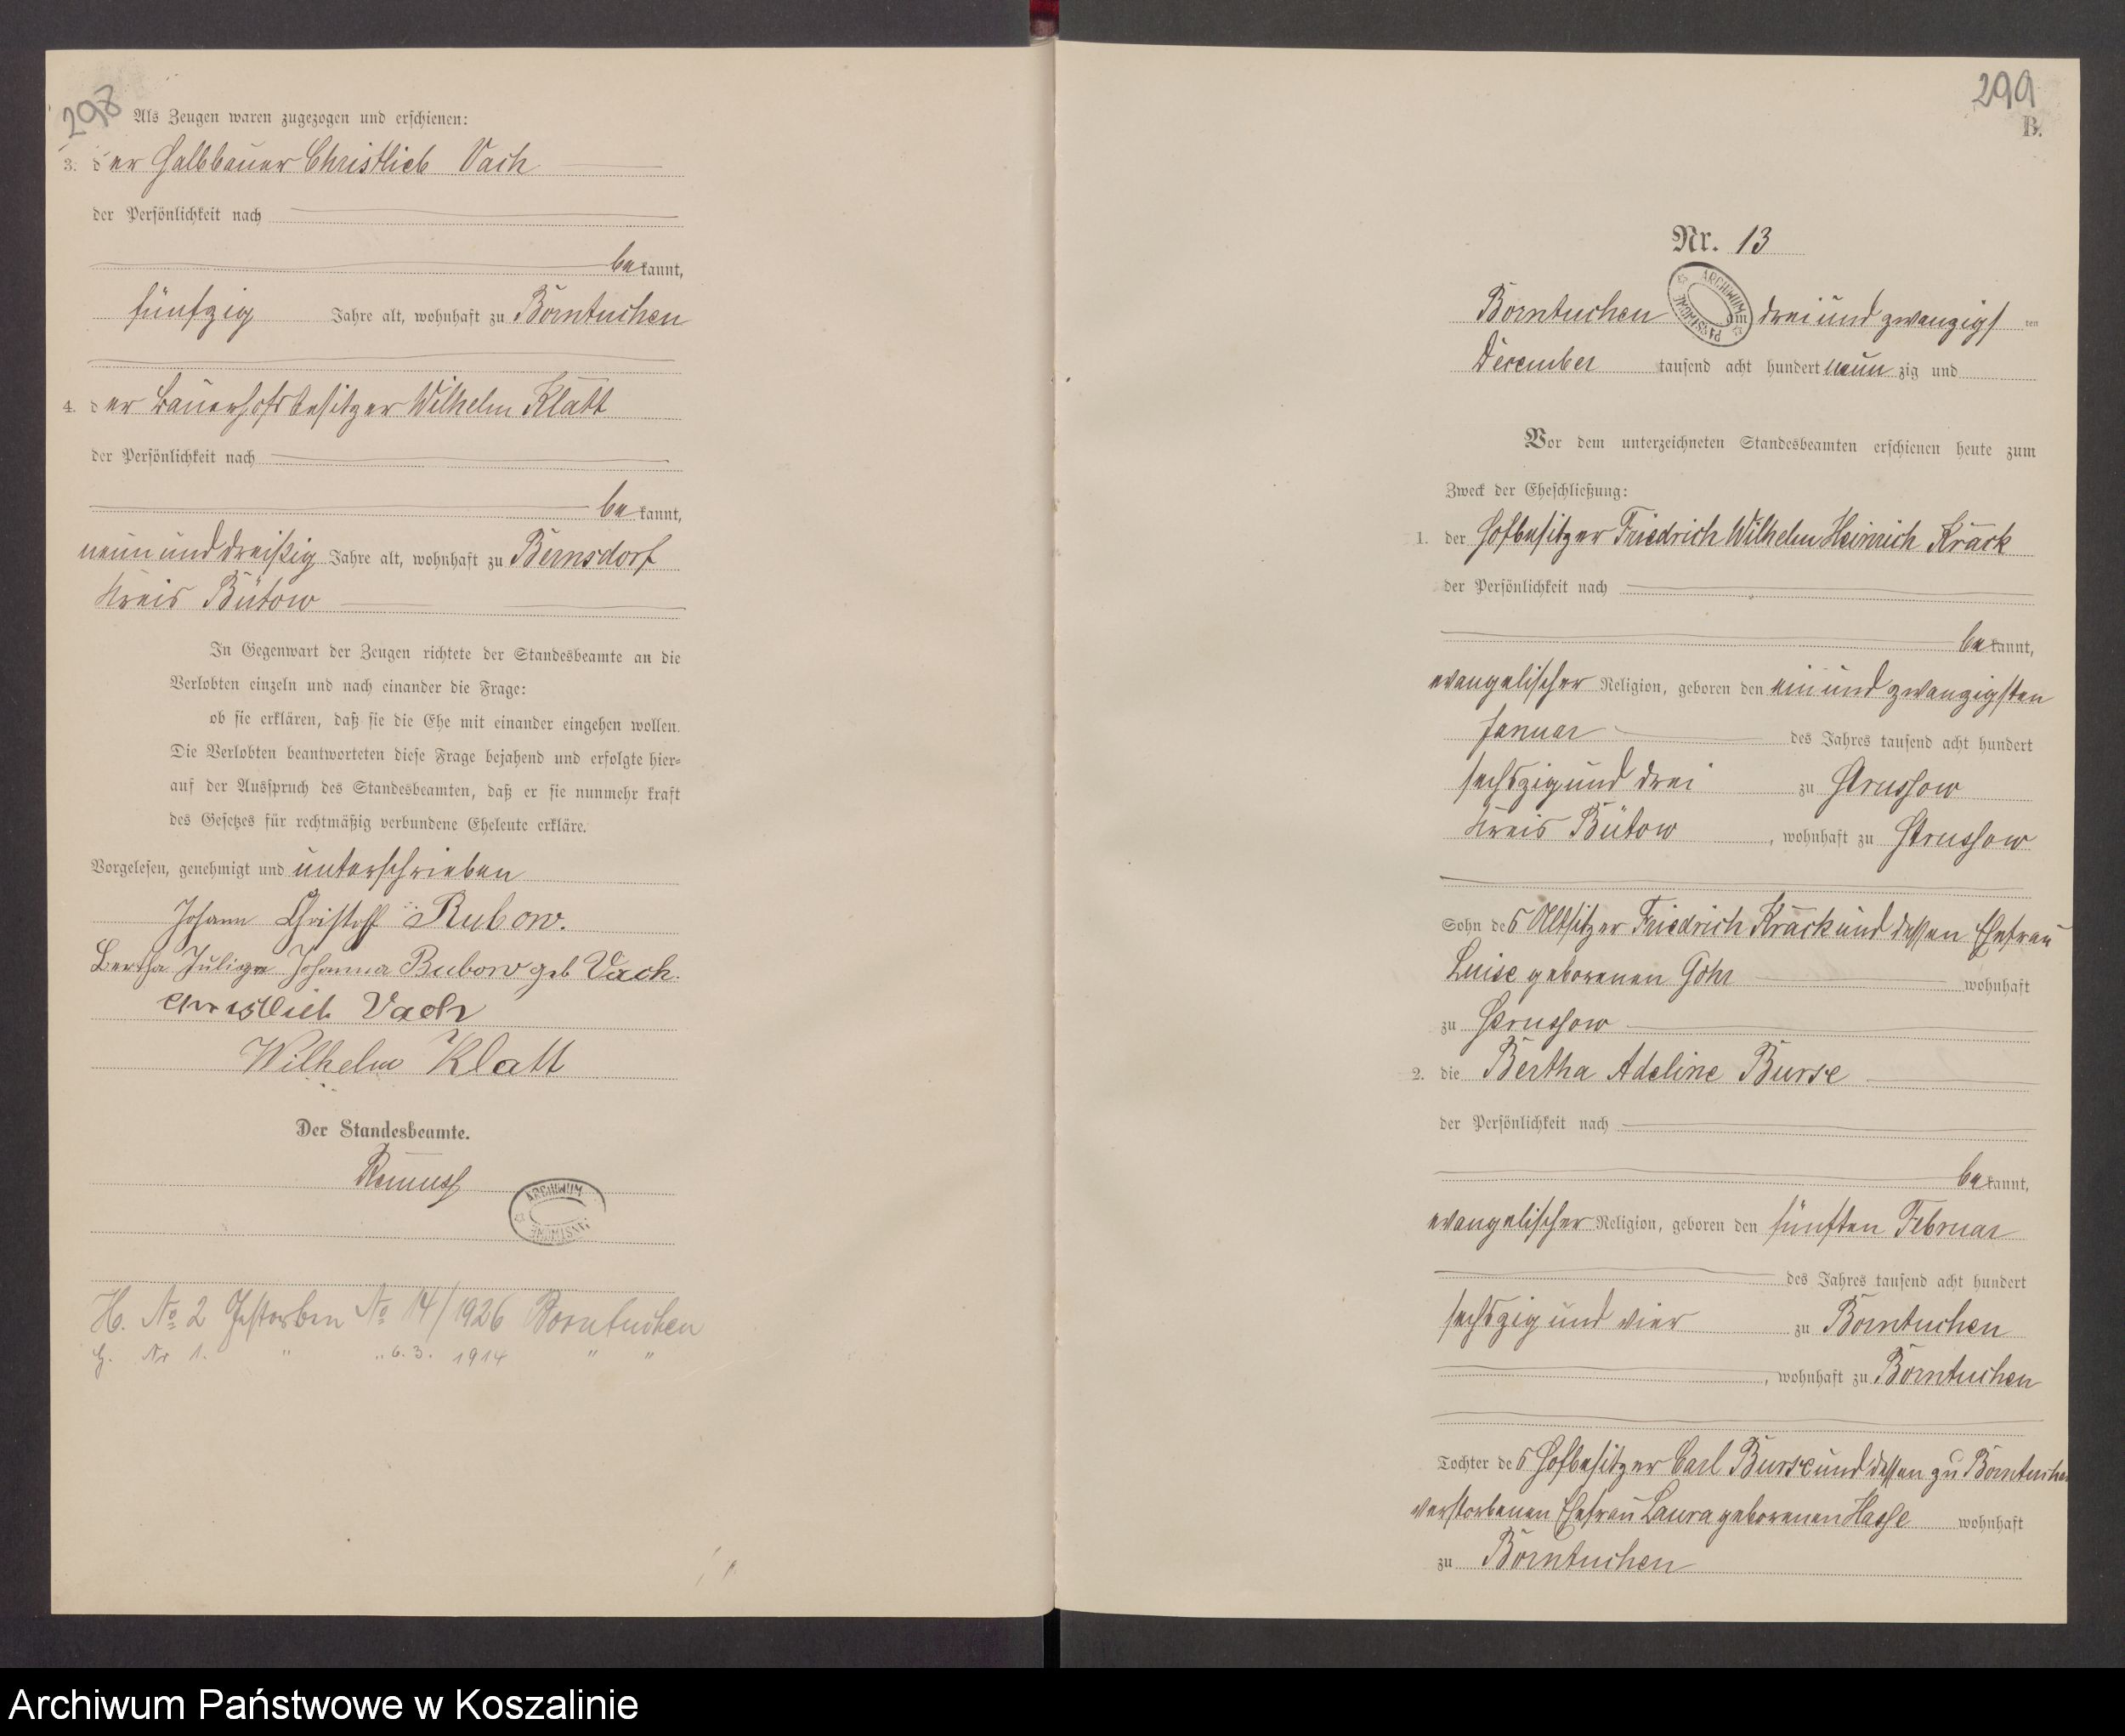 298
Als Zeugen waren zugezogen und erschienen:
3. der Halbbauer Christlieb Vach
der Persönlichkeit nach
bekannt,
fünfzig Jahre alt, wohnhaft zu Borntuchen
4. der Bauerhofsbesitzer Wilhelm Klatt
der Persönlichkeit nach
bekannt,
neun und dreißig Jahre alt, wohnhaft zu Bernsdorf
Kreis Bütow
In Gegenwart der Zeugen richtete der Standesbeamte an die
Verlobten einzeln und nach einander die Frage:
ob sie erklären, daß sie die Ehe mit einander eingehen wollen.
Die Verlobten beantworteten diese Frage bejahend und erfolgte hier=
auf der Ausspruch des Standesbeamten, daß er sie nunmehr kraft
des Gesetzes für rechtmäßig verbundene Eheleute erkläre.
Vorgelesen, genehmigt und unterschrieben
Johann Christoff Rubow.
Bertha Juliane Johanna Rubow geb Vach.
Christlieb Vach
Wilhelm Klatt
Der Standesbeamte.
ARCHIWUM PAŃSTWOWE
H. No 2 Gestorben No 14/1926 Borntuchen
H. Nr 1. " " 6. 3. 1914 " "
299
B.
Nr. 13
Borntuchen am drei und zwanzigsten
December tausend acht hundert neunzig und
ARCHIWUM PAŃSTWOWE
Vor dem unterzeichneten Standesbeamten erschienen heute zum
Zweck der Eheschließung:
1. der Hofbesitzer Friedrich Wilhelm Heinrich Krack
der Persönlichkeit nach
bekannt,
evangelischer Religion, geboren den ein und zwanzigsten
Januar des Jahres tausend acht hundert
sechszig und drei zu Strussow
Kreis Bütow, wohnhaft zu Strussow
Sohn des Altsitzer Friedrich Krack und dessen Ehefrau
Luise geborenen Göhr wohnhaft
zu Strussow
2. die Bertha Adeline Burse
der Persönlichkeit nach
bekannt,
evangelischer Religion, geboren den fünften Februar
des Jahres tausend acht hundert
sechszig und vier zu Borntuchen
, wohnhaft zu Borntuchen
Tochter des Hofbesitzer Carl Burse und dessen zu Borntuchen
verstorbenen Ehefrau Laura geborenen Hasse wohnhaft
zu Borntuchen
Archiwum Państwowe w Koszalinie